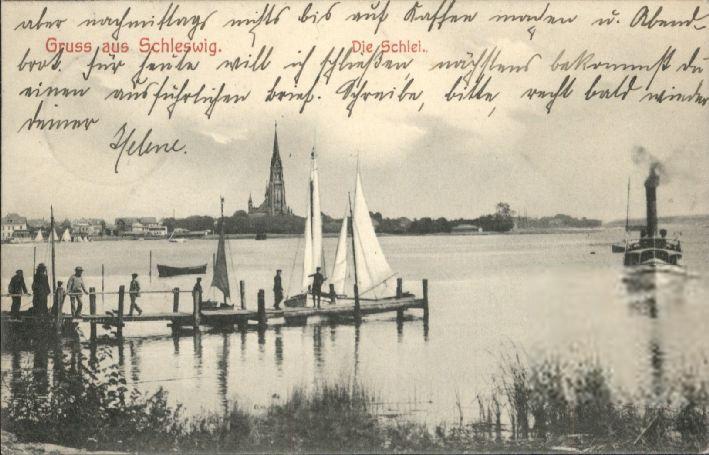 aber nachmittags nichts bis auf Kaffen machen u. Abend-
Gruss aus Schleswig.
Die Schlei.
brot. Für heute will ich schließen nächstens bekommst du
einen ausführlichen Brief. Schreibe, bitte, recht bald wieder
deiner
Helene.